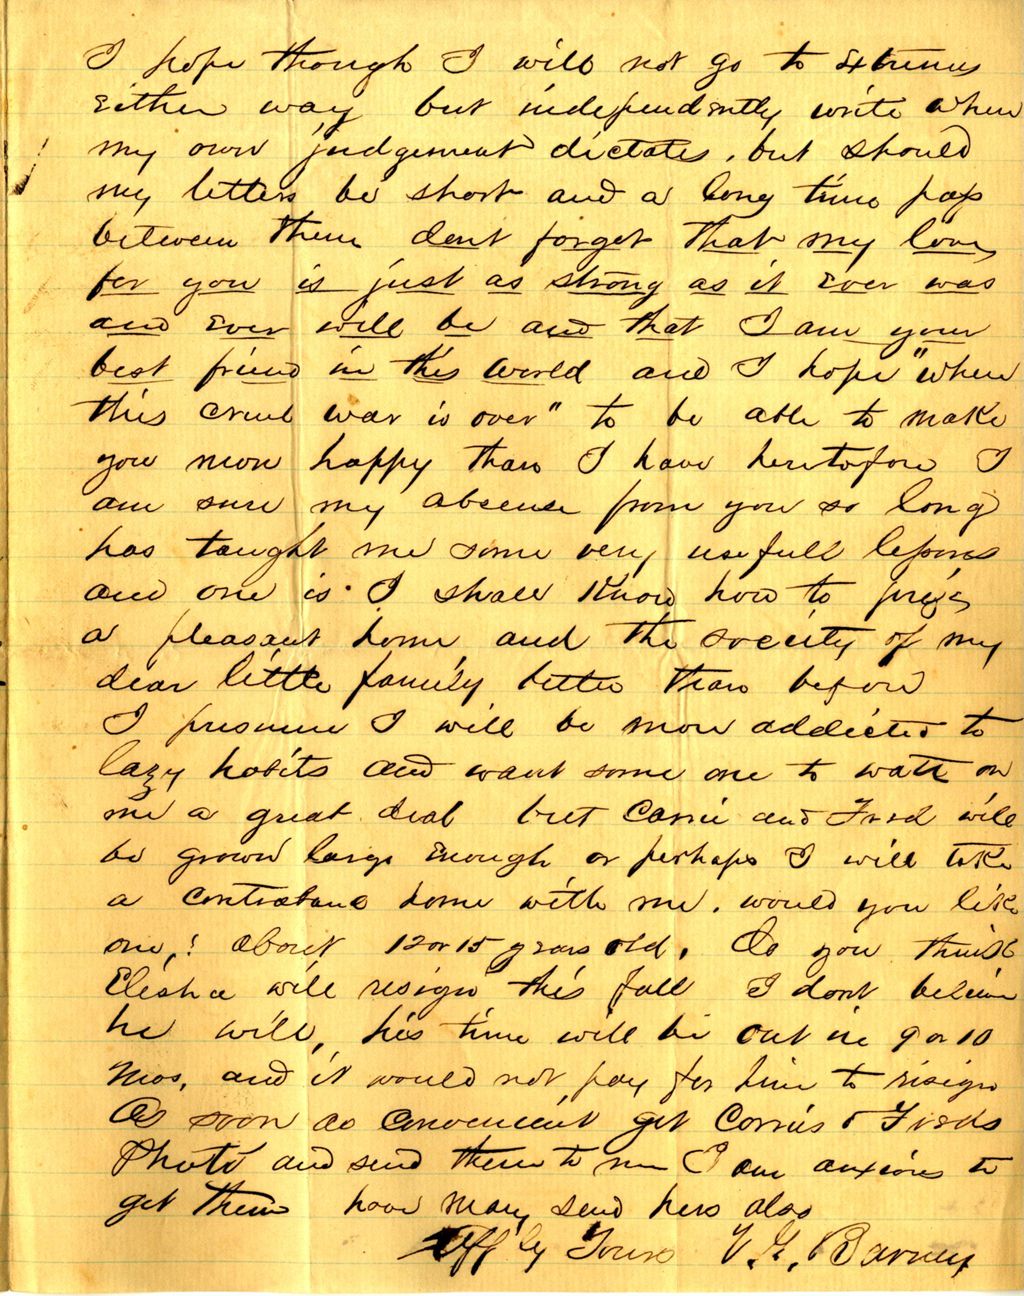 I hope though I will not go to extremes
either way but independently write when
my own judgement dictates, but should
my letters be short and a long time pass
between them dont forget that my love
for you is just as strong as it ever was
and ever will be and that I am your
best friend in this world and I hope "when
this cruel war is over" to be able to make
you more happy than I have heretofore I
am sure my absence from you so long
has taught me some very usefull lessons
and one is. I shall know how to prize
a pleasant home and the society of my
dear little family better than before
I presume I will be more addicted to
lazy habits and want some one to wait on
me a great deal but Carrie and Fred will
be grown large enough or perhaps I will take
a contraband home with me. would you like
one,? about 12 or 15 years old. Do you think
Elisha will resign this fall I dont believe
he will, his time will be out in 9 or 10
mos. and it would not pay for him to resign
As soon as convenient get Carries & Freds
Photo and send them to me I am anxious to
get them have Mary send hers also
Affly Yours V. G. Barney